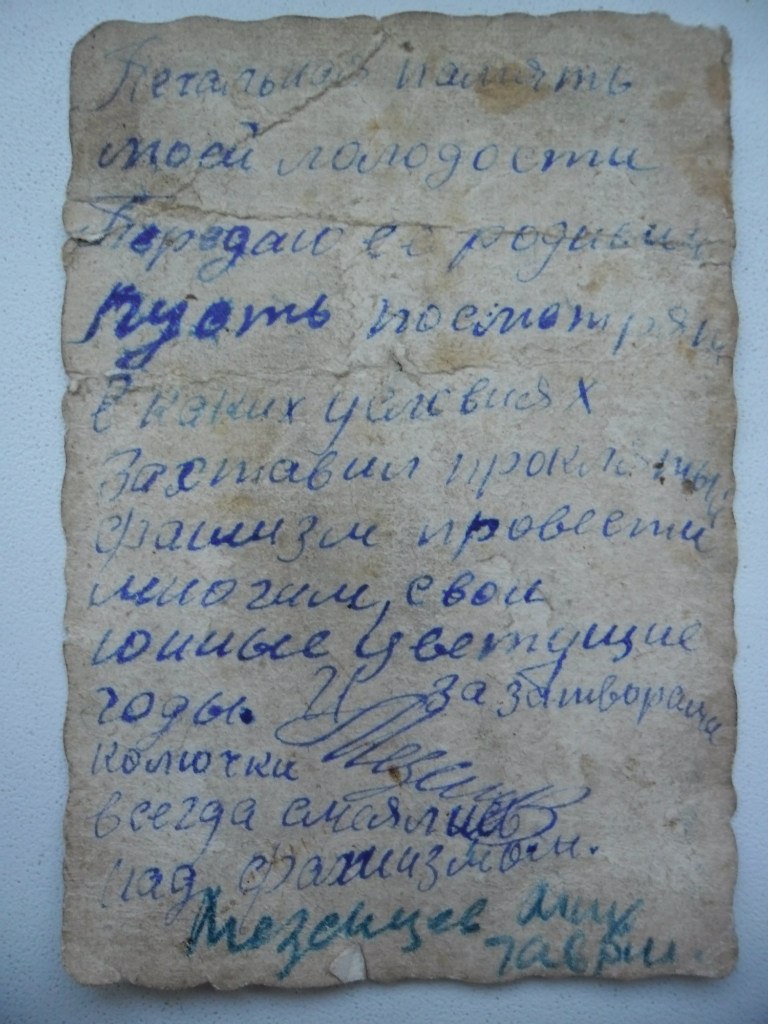 Печальная память
моей молодости
Передаю её родным
пусть посмотрят
в каких условиях
Заставил проклятый
фашизм провести
многим, свои
юнные цветущие
годы. И за затворами
колючки
всегда смеялись
над фашизмом.
Мезенцев Мих
Гаври.